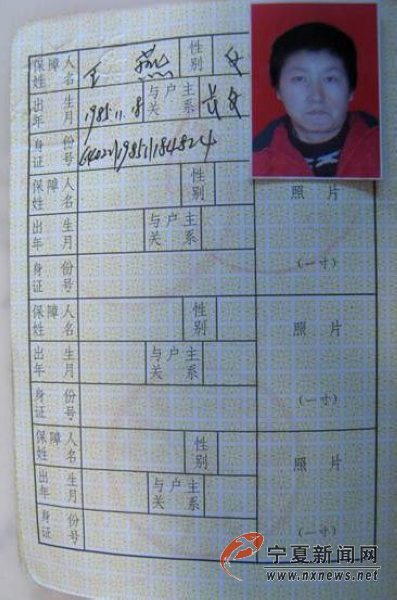 保障人姓名 王燕 性别 女
出生年月 与户主关系 长女
身份证号
保障人姓名 性别 照片
出生年月 与户主关系
身份证号 (一寸)
保障人姓名 性别 照片
出生年月 与户主关系
身份证号 (一寸)
保障人姓名 性别 照片
出生年月 与户主关系
身份证号 (一寸)
宁夏新闻网
www.nxnews.net